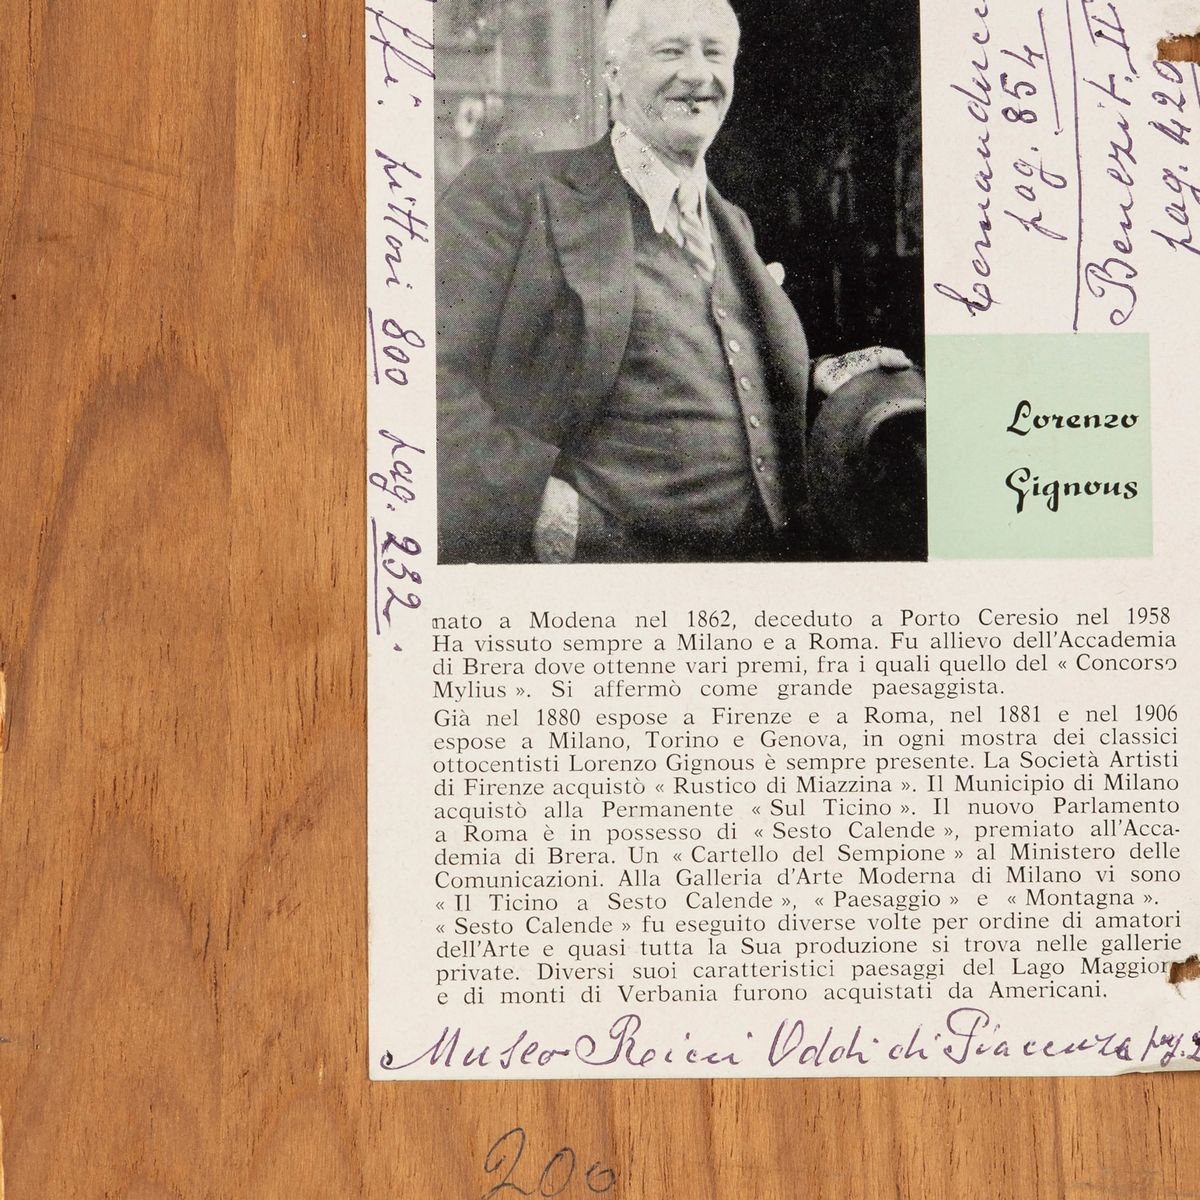 Littori 800 pag. 232.
pag. 854
Benezit. II
pag. 420
Lorenzo
Gignous
nato a Modena nel 1862, deceduto a Porto Ceresio nel 1958
Ha vissuto sempre a Milano e a Roma. Fu allievo dell'Accademia
di Brera dove ottenne vari premi, fra i quali quello del « Concorso
Mylius ». Si affermò come grande paesaggista.
Già nel 1880 espose a Firenze e a Roma, nel 1881 e nel 1906
espose a Milano, Torino e Genova, in ogni mostra dei classici
ottocentisti Lorenzo Gignous è sempre presente. La Società Artisti
di Firenze acquistò « Rustico di Miazzina ». Il Municipio di Milano
acquistò alla Permanente « Sul Ticino ». Il nuovo Parlamento
a Roma è in possesso di « Sesto Calende », premiato all'Acca-
demia di Brera. Un « Cartello del Sempione » al Ministero delle
Comunicazioni. Alla Galleria d'Arte Moderna di Milano vi sono
« Il Ticino a Sesto Calende », « Paesaggio » e « Montagna ».
« Sesto Calende » fu eseguito diverse volte per ordine di amatori
dell'Arte e quasi tutta la Sua produzione si trova nelle gallerie
private. Diversi suoi caratteristici paesaggi del Lago Maggior
e di monti di Verbania furono acquistati da Americani.
Museo Ricci Oddi di Piacenza pag.
200